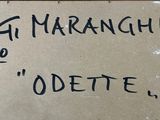 GI MARANGH
o
"ODETTE"